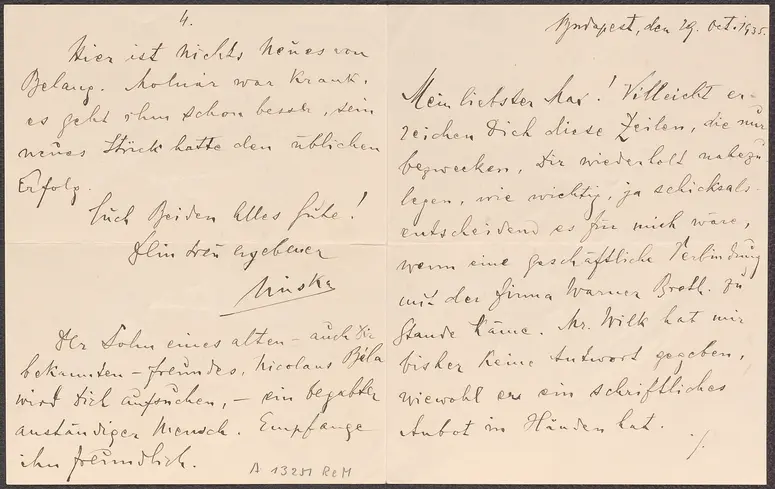 Budapest, den 29. Oct. 1935.
Mein liebster Max! Villeicht er-
reichen Dich diese Zeilen, die nur
bezwecken, Dir wiederholt nahezu
legen, wie wichtig, ja schicksals-
entscheidend es für mich wäre,
wenn eine geschäftliche Verbindung
mit der Firma Warner Broth. zu
Stande käme. Mr. Wilk hat mir
bisher keine Antwort gegeben,
wiewohl er ein schriftliches
Anbot in Händen hat.
./.
4.
Hier ist nichts Neues von
Belang. Molnár war krank,
es geht ihm schon besser, sein
neues Stück hatte den üblichen
Erfolg.
Euch Beiden alles Gute!
Dein treu ergebener
Der Sohn eines alten – auch Dir
bekannten – Freundes, Nicolaus Béla
wird Dich aufsuchen, – ein begabter
anständiger Mensch. Empfange
ihn freundlich.
A 13251 ReM